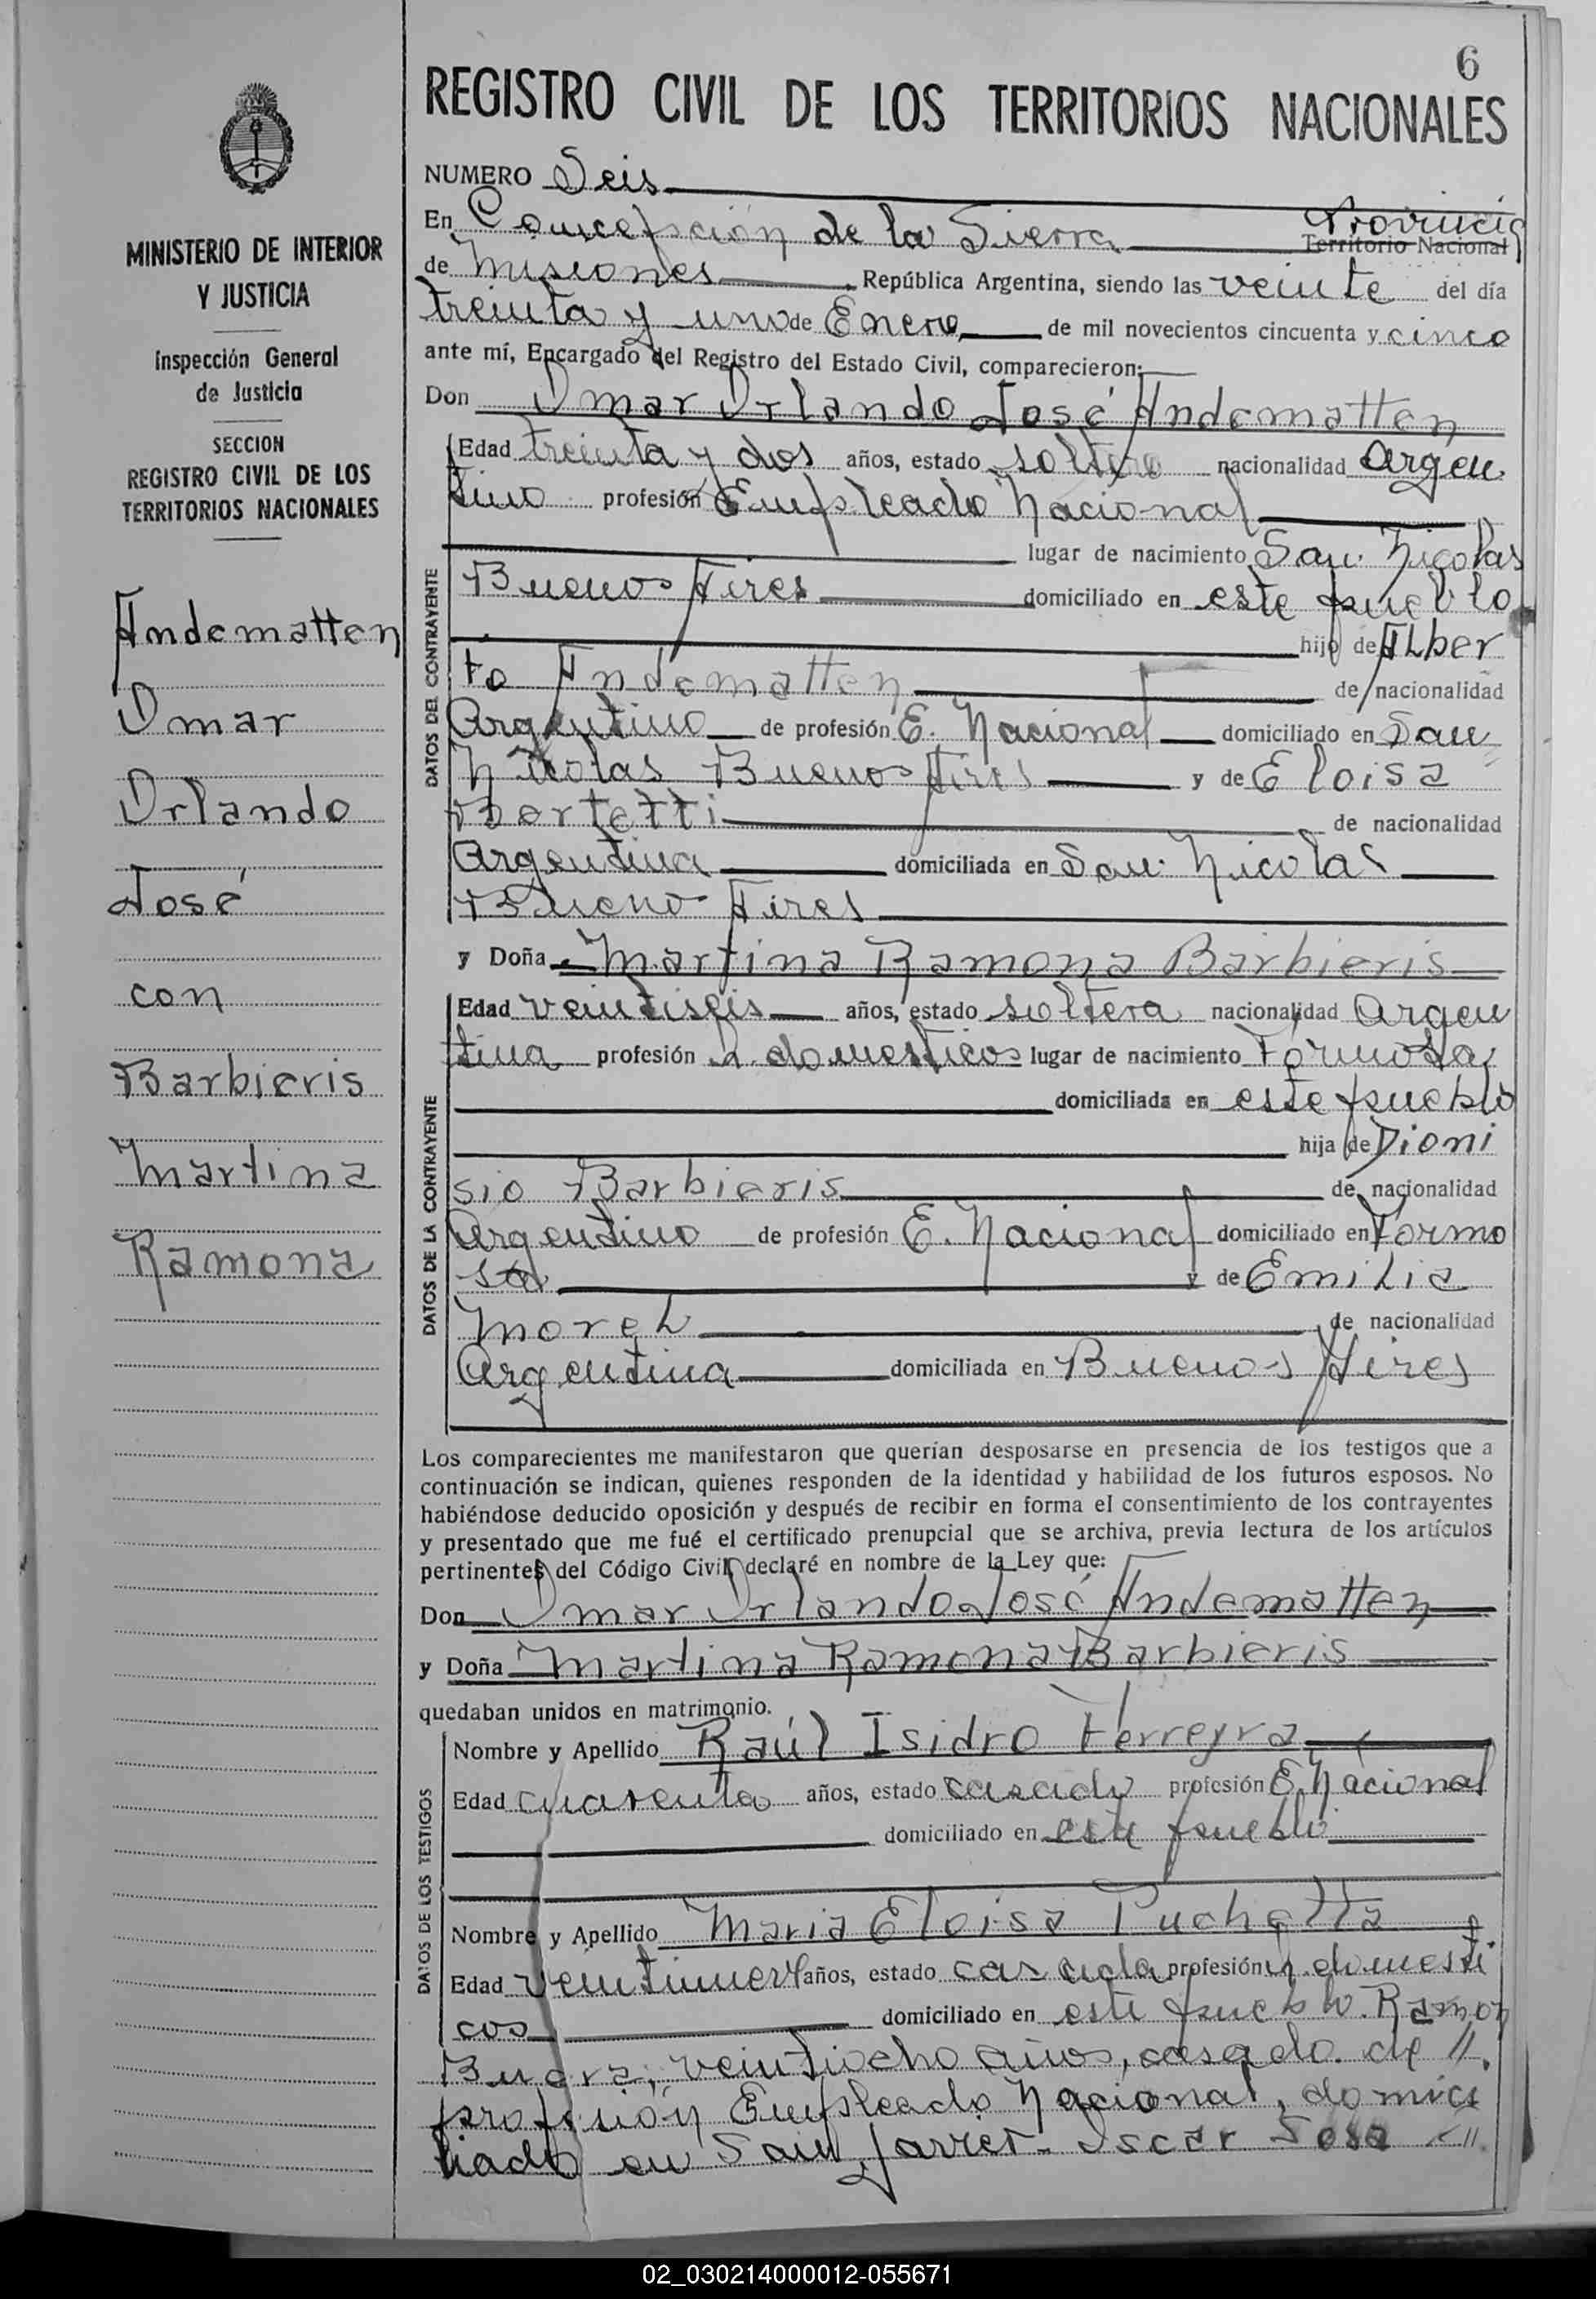 6
REGISTRO CIVIL DE LOS TERRITORIOS NACIONALES
MINISTERIO DE INTERIOR
Y JUSTICIA
Inspección General
de Justicia
SECCION
REGISTRO CIVIL DE LOS
TERRITORIOS NACIONALES
Andematten
Omar
Orlando
José
con
Barbieris
Martina
Ramona
NUMERO Seis
En Concepción de la Sierra Provincia Territorio Nacional
de Misiones República Argentina, siendo las veinte del día
treinta y uno de Enero de mil novecientos cincuenta y cinco
ante mí, Encargado del Registro del Estado Civil, comparecieron:
Don Omar Orlando José Andematten
DATOS DEL CONTRAYENTE
Edad treinta y dos años, estado soltero nacionalidad Argen
tino profesión Empleado Nacional
lugar de nacimiento San Nicolas
Buenos Aires domiciliado en este pueblo
hijo de Alber
to Andematten de nacionalidad
Argentino de profesión E. Nacional domiciliado en San
Nicolas Buenos Aires y de Eloisa
Bertetti de nacionalidad
Argentina domiciliada en San Nicolas
Bueno Aires
y Doña Martina Ramona Barbieris
DATOS DE LA CONTRAYENTE
Edad veintiseis años, estado soltera nacionalidad Argen
tina profesión Q. domesticos lugar de nacimiento Formosa
domiciliada en este pueblo
hija de Dioni
sio Barbieris de nacionalidad
Argentino de profesión E. Nacional domiciliado en Formo
sa y de Emilia
Morel de nacionalidad
Argentina domiciliada en Buenos Aires
Los comparecientes me manifestaron que querían desposarse en presencia de los testigos que a
continuación se indican, quienes responden de la identidad y habilidad de los futuros esposos. No
habiéndose deducido oposición y después de recibir en forma el consentimiento de los contrayentes
y presentado que me fué el certificado prenupcial que se archiva, previa lectura de los artículos
pertinentes del Código Civil, declaré en nombre de la Ley que:
Don Omar Orlando José Andematten
y Doña Martina Ramona Barbieris
quedaban unidos en matrimonio.
DATOS DE LOS TESTIGOS
Nombre y Apellido Raúl Isidro Ferreyra
Edad cuarenta años, estado casado profesión E. Nacional
domiciliado en este pueblo
Nombre y Apellido Maria Eloisa Puchetta
Edad veintinueve años, estado casada profesión Q. domesti
cos domiciliado en este pueblo. Ramon
años, casado de //.
profesión Empleado Nacional, domici
liado en San Javier. Oscar Sosa //.
02_030214000012-055671